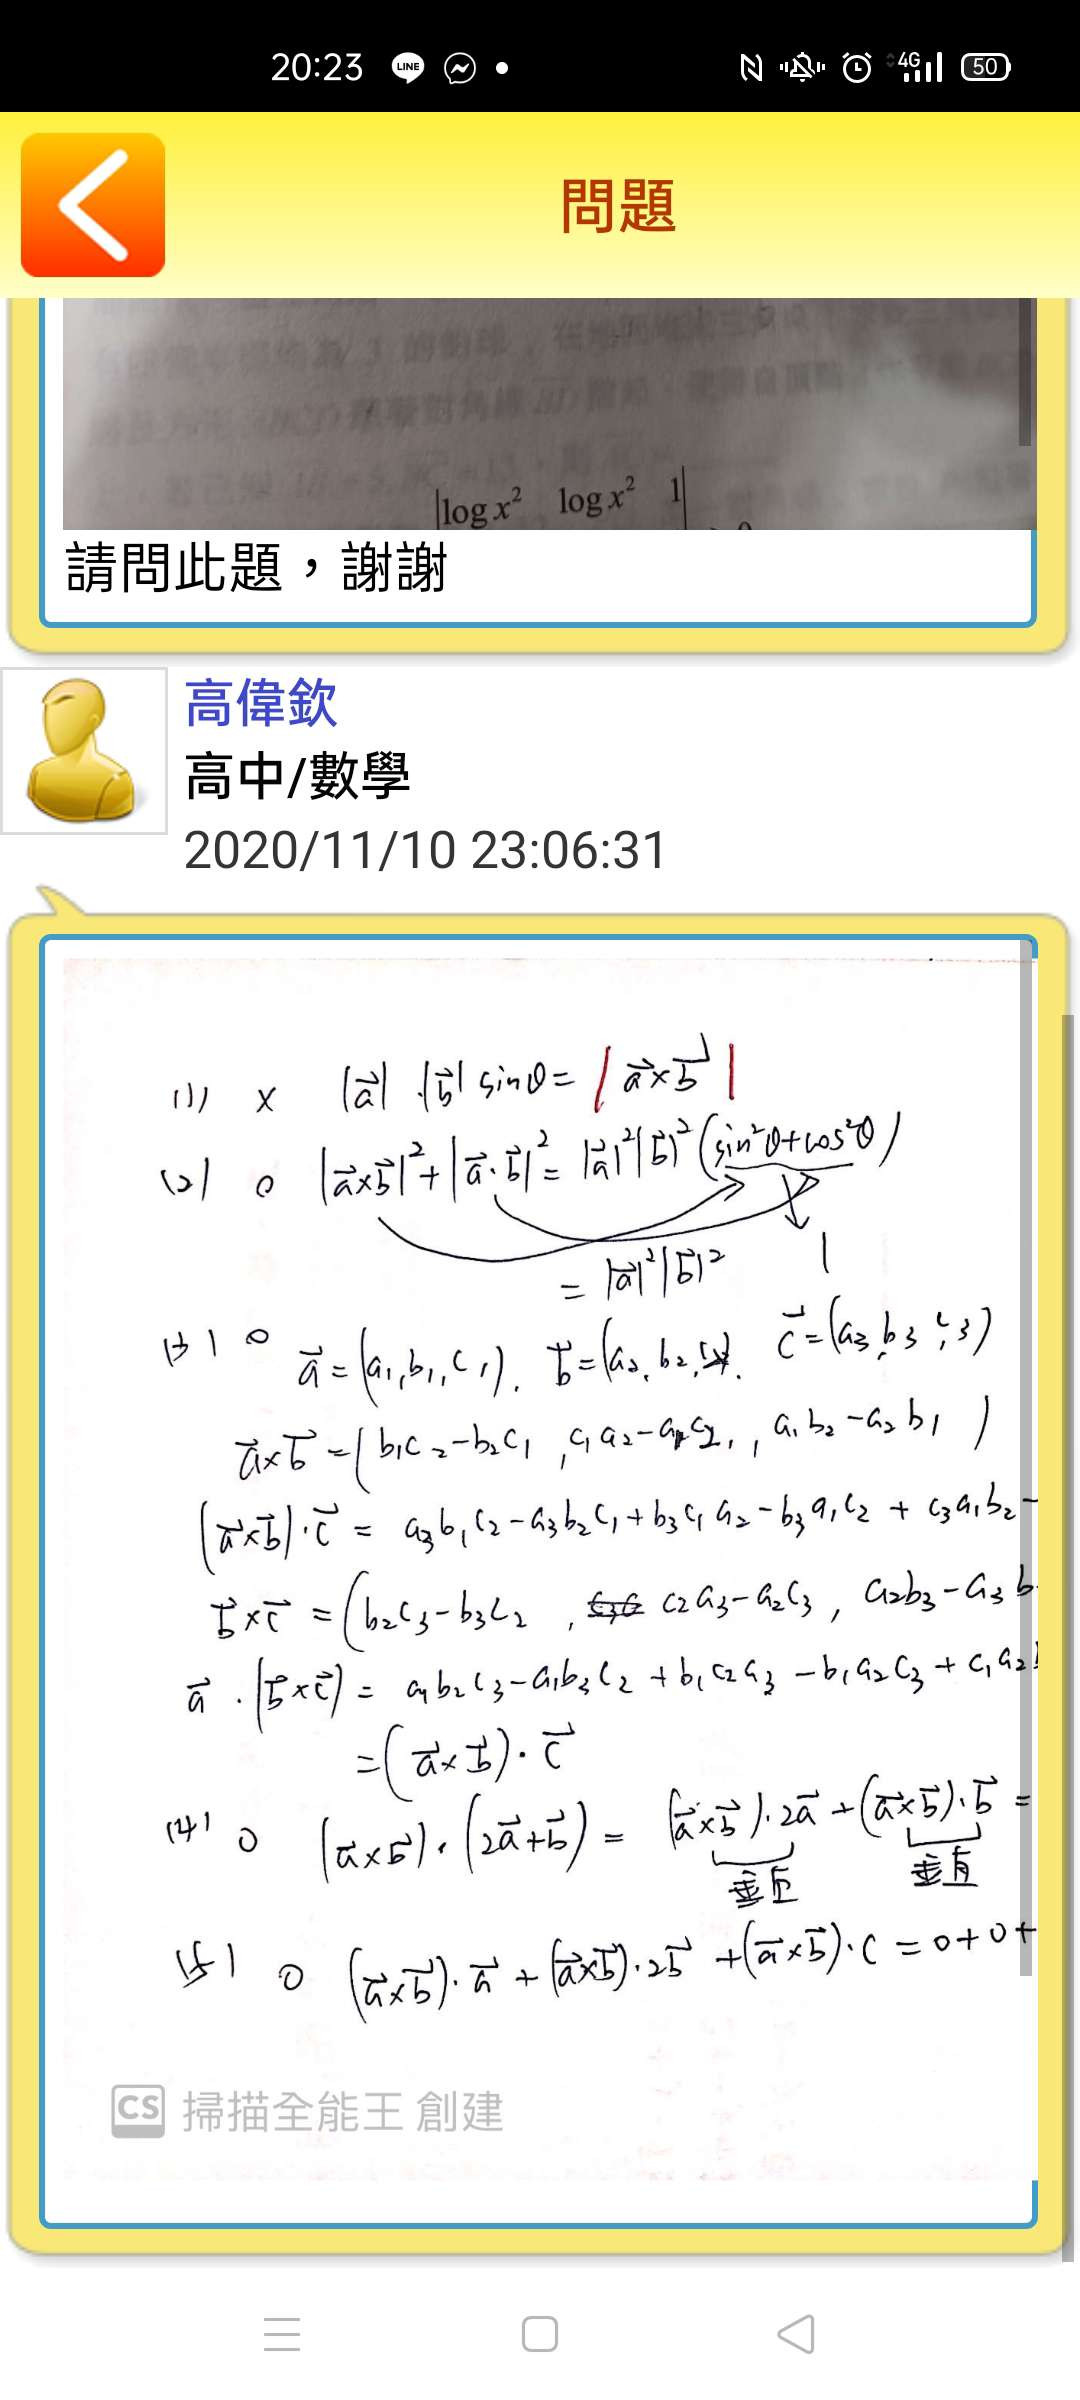 20:23 LINE 4G 50
問題
|log x² log x² 1|
請問此題，謝謝
高偉欽
高中/數學
2020/11/10 23:06:31
(1) × |a⃗|·|b⃗| sinθ = |a⃗×b⃗|
(2) ○ |a⃗×b⃗|²+|a⃗·b⃗|² = |a⃗|²|b⃗|²(sin²θ+cos²θ)
1
= |a⃗|²|b⃗|²
(3) ○ a⃗=(a₁,b₁,c₁), b⃗=(a₂,b₂,c₂), c⃗=(a₃,b₃,c₃)
a⃗×b⃗ = (b₁c₂-b₂c₁, c₁a₂-a₁c₂, a₁b₂-a₂b₁)
(a⃗×b⃗)·c⃗ = a₃b₁c₂-a₃b₂c₁+b₃c₁a₂-b₃a₁c₂+c₃a₁b₂-
b⃗×c⃗ = (b₂c₃-b₃c₂, c₂a₃-a₂c₃, a₂b₃-a₃b
a⃗·(b⃗×c⃗) = a₁b₂c₃-a₁b₃c₂+b₁c₂a₃-b₁a₂c₃+c₁a₂
=(a⃗×b⃗)·c⃗
(4) ○ (a⃗×b⃗)·(2a⃗+b⃗) = (a⃗×b⃗)·2a⃗+(a⃗×b⃗)·b⃗ =
垂直 垂直
(5) ○ (a⃗×b⃗)·a⃗+(a⃗×b⃗)·2b⃗+(a⃗×b⃗)·c = 0+0+
CS 掃描全能王 創建